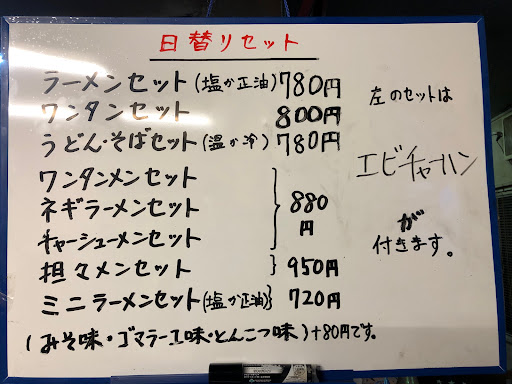 日替りセット
ラーメンセット(塩か正油)780円
ワンタンセット 800円
うどん・そばセット(温か冷)780円
ワンタンメンセット
ネギラーメンセット
チャーシューメンセット
880
円
担々メンセット 950円
ミニラーメンセット(塩か正油) 720円
(みそ味・ゴマラー工味・とんこつ味)+80円です。
左のセットは
エビチャーハン
が
付きます。